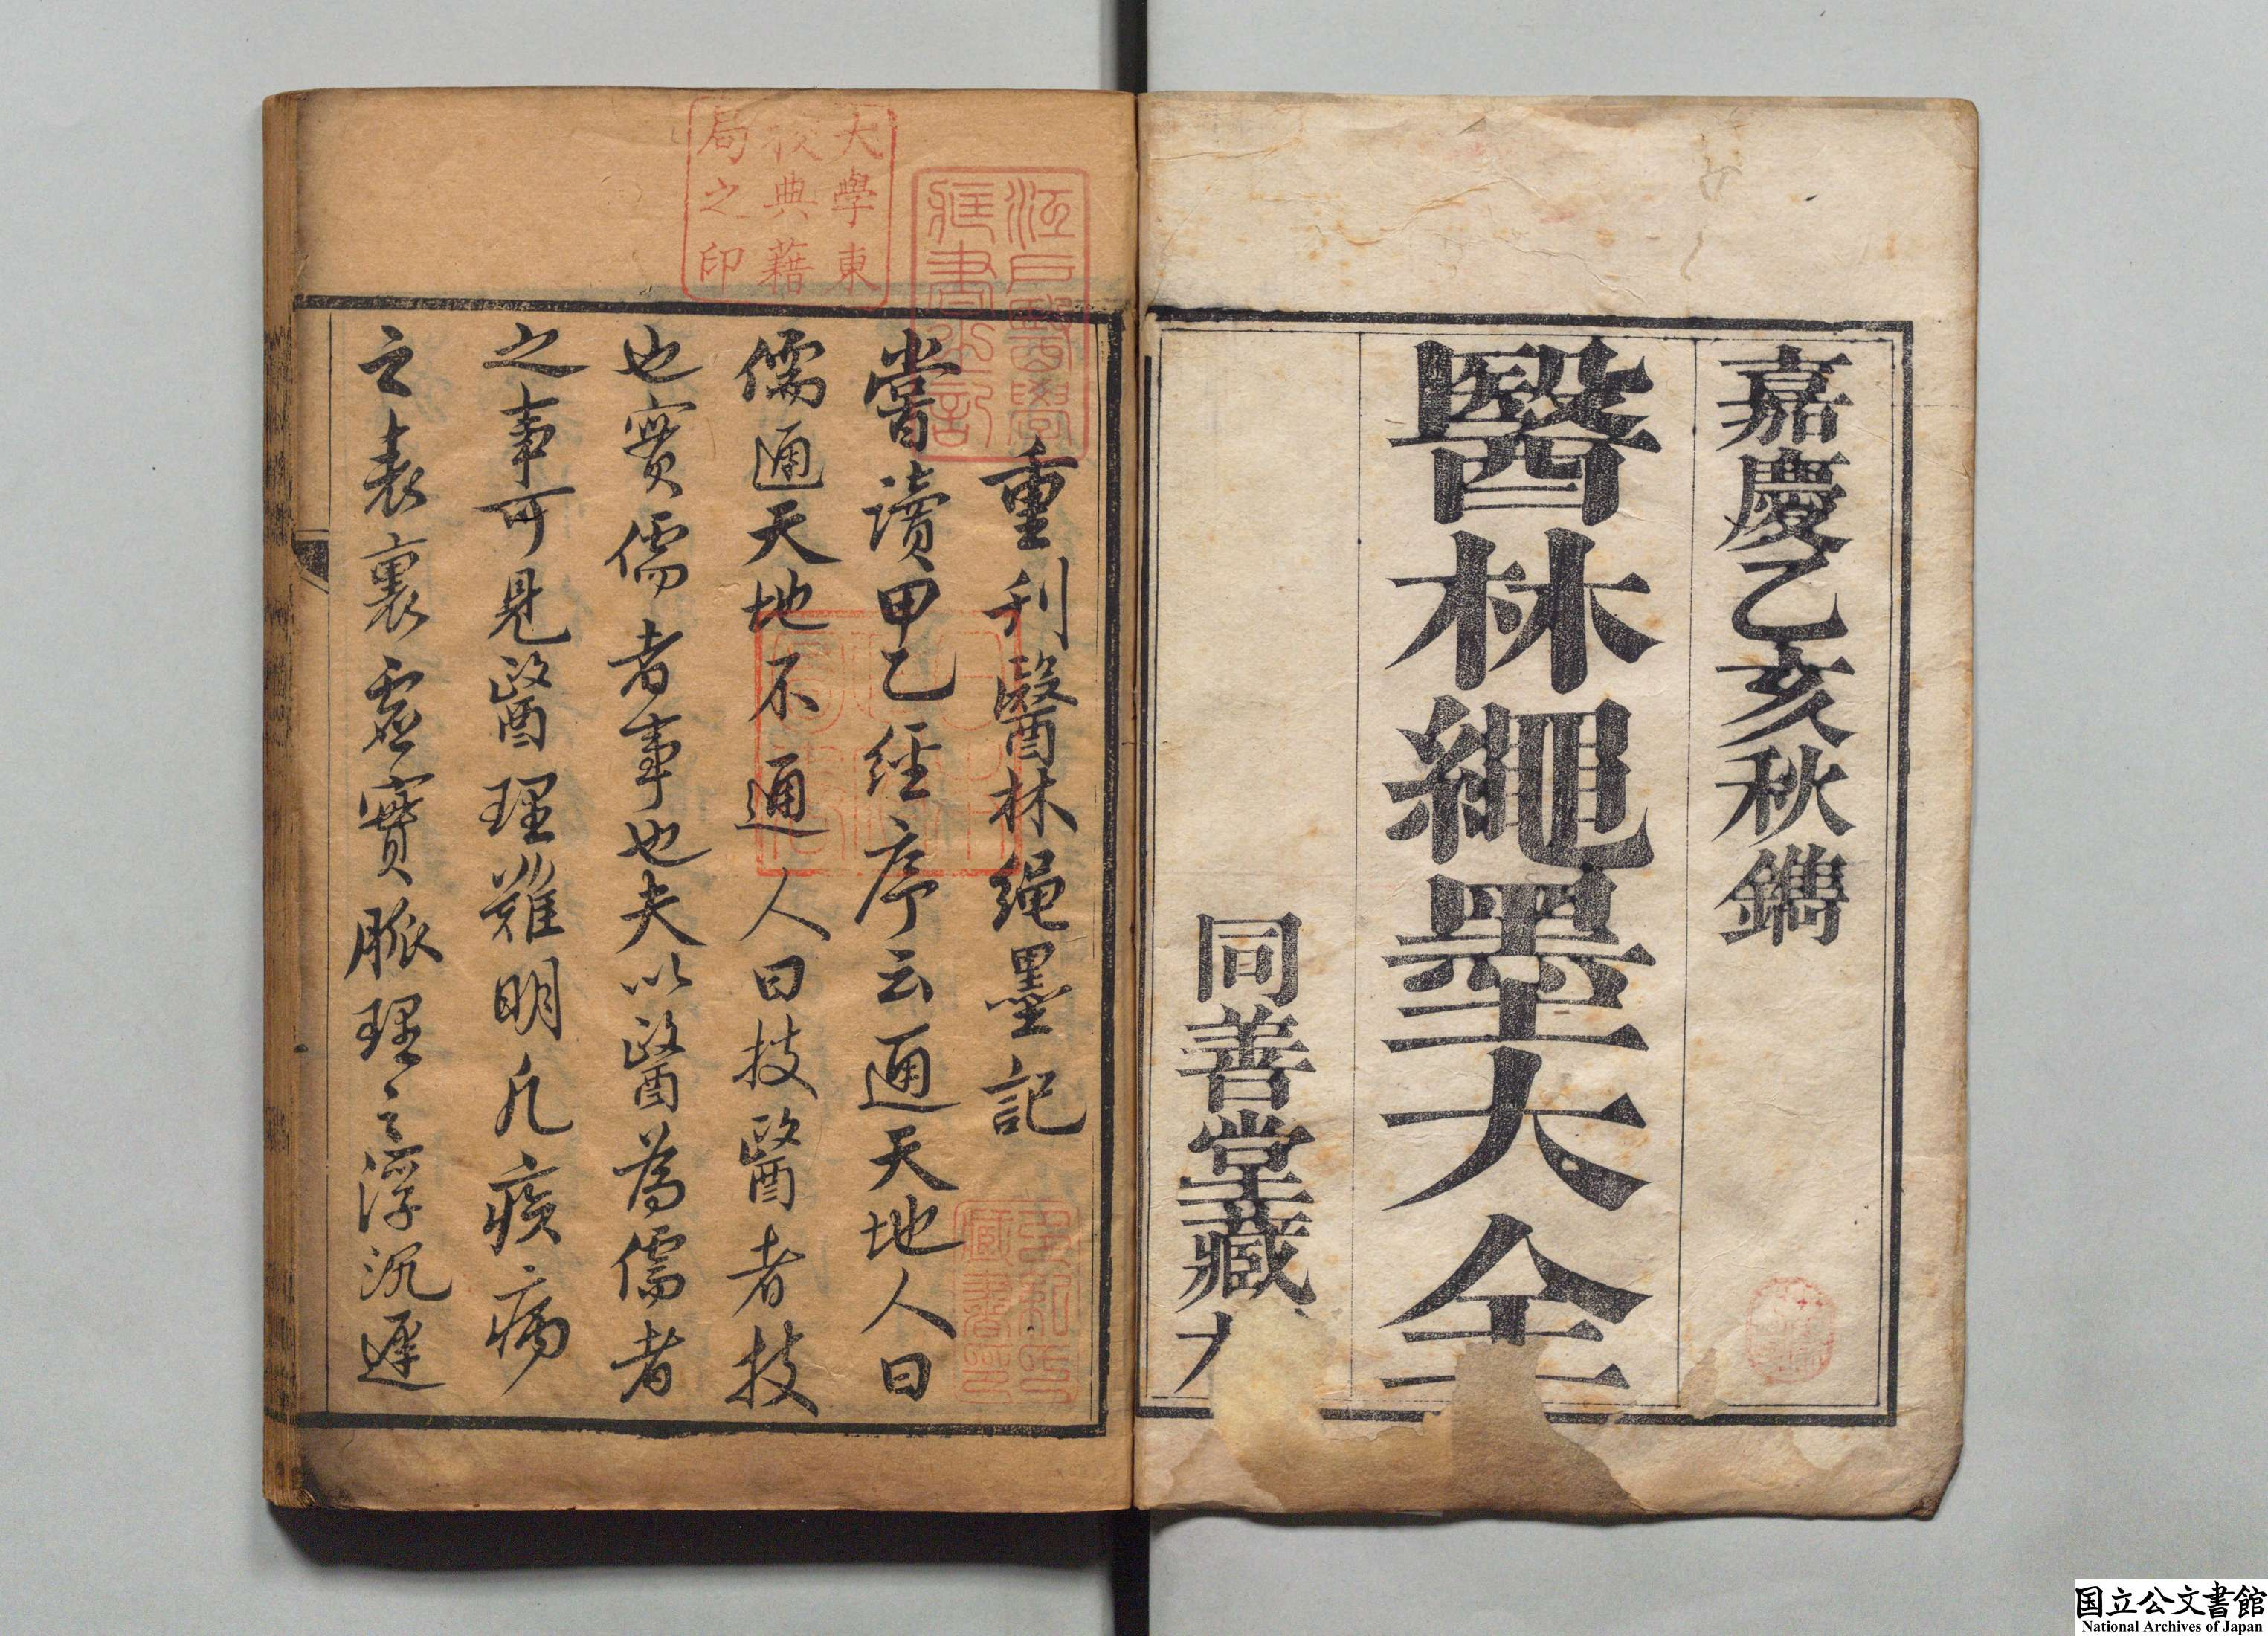 嘉慶乙亥秋鐫
醫林繩墨大全
同善堂藏
重刋醫林繩墨記
嘗讀甲乙經序云通天地人曰
儒通天地不通人曰技醫者技
也實儒者事也夫以醫為儒者
之事可見醫理難明凡疾病
之表裏虛實脈理之浮沉遲
大學東
校典藉
局之印
江戶醫學
藏書之記
国立公文書館
National Archives of Japan